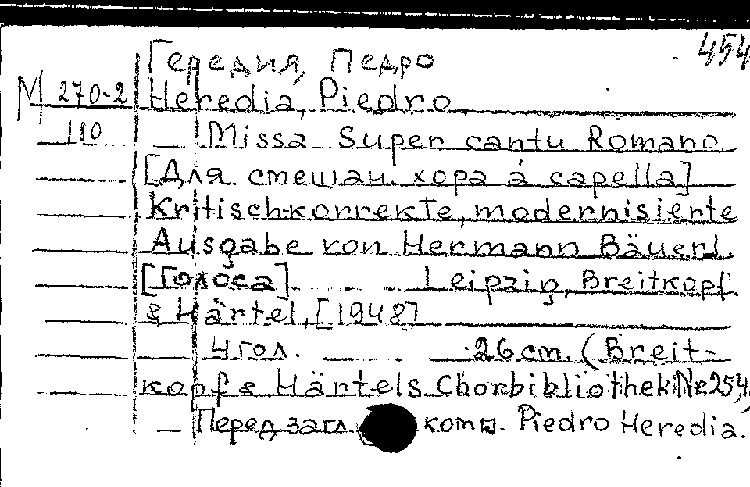 454
Гередия, Педро
М 270-2 Heredia, Piedro.
110 Missa Super cantu Romano
[Для смешан. хора a capella]
Kritisch-korrekte, modernisierte
Ausgabe von Hermann Bäuerl.
[Голоса] Leipzig, Breitkopf
& Härtel, [1948]
4 гол. 26 cm. (Breit-
kopf & Härtels Chorbibliothek Nr 254)
Перед загл. комп. Piedro Heredia.